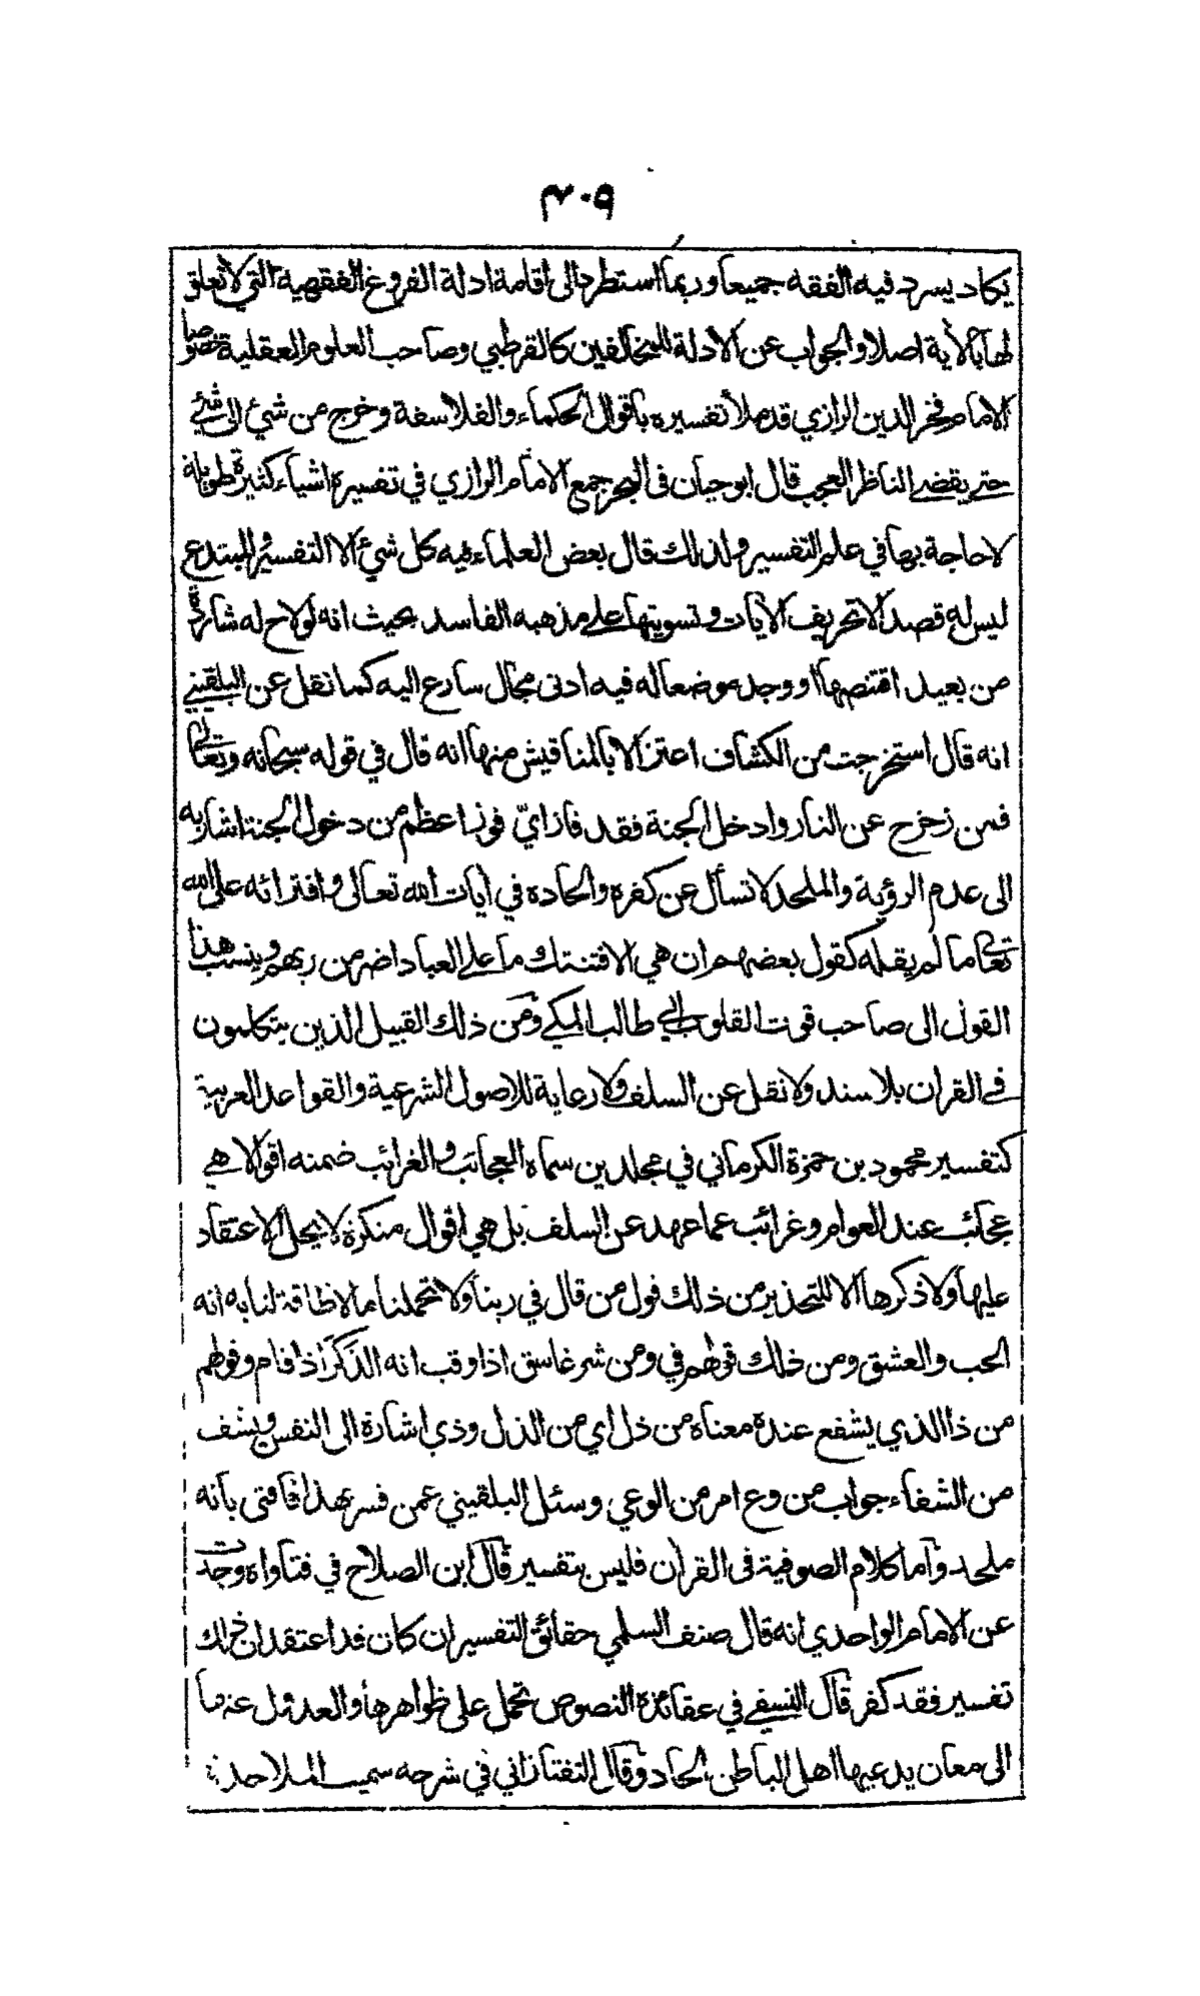 ٣٠٩
يكاد يسرد فيه الفقه جميعا وربما استطرد الى اقامة ادلة الفروع الفقهية التي لا تعلق
لها بالآية اصلا والجواب عن الادلة للمخالفين كالقرطبي وصاحب العلوم العقلية خصوصا
الامام فخر الدين الرازي قد ملأ تفسيره باقوال الحكماء والفلاسفة وخرج من شيء الى شيء
حتى يقضي الناظر العجب قال ابو حيان في البحر جمع الامام الرازي في تفسيره اشياء كثيرة طويلة
لا حاجة بها في علم التفسير ولذلك قال بعض العلماء فيه كل شيء الا التفسير والمبتدع
ليس له قصد الا تحريف الآيات وتسويتها على مذهبه الفاسد بحيث انه لو لاح له شاردة
من بعيد اقتنصها او وجد موضعا له فيه ادنى مجال سارع اليه كما نقل عن البلقيني
انه قال استخرجت من الكشاف اعتزالا بالمناقيش منها انه قال في قوله سبحانه وتعالى
فمن زحزح عن النار وادخل الجنة فقد فاز ايّ فوز اعظم من دخول الجنة اشار به
الى عدم الرؤية والملحد لا تسأل عن كفره والحاده في آيات الله تعالى وافترائه على الله
تعالى ما لم يقله كقول بعضهم ان هي الا فتنتك ما على العباد اضر من ربهم وينسب هذا
القول الى صاحب قوت القلوب ابي طالب المكي ومن ذلك القبيل الذين يتكلمون
في القران بلا سند ولا نقل عن السلف ولا رعاية للاصول الشرعية والقواعد العربية
كتفسير محمود بن حمزة الكرماني في مجلدين سماه العجائب والغرائب ضمنه اقوالا هي
عجائب عند العوام وغرائب عما عهد عن السلف بل هي اقوال منكرة لا يحل الاعتقاد
عليها ولا ذكرها الا للتحذير من ذلك قول من قال في ربنا ولا تحملنا ما لا طاقة لنا به انه
الحب والعشق ومن ذلك قولهم في ومن شر غاسق اذا وقب انه الذَّكَرَ اذا قام وقولهم
من ذا الذي يشفع عنده معناه من ذل اي من الذل وذي اشارة الى النفس ويشف
من الشفاء جواب من وع امر من الوعي وسئل البلقيني عمن فسر بهذا فافتى بانه
ملحد واما كلام الصوفية في القرآن فليس بتفسير قال ابن الصلاح في فتاواه وجدت
عن الامام الواحدي انه قال صنف السلمي حقائق التفسير ان كان قد اعتقد ان ذلك
تفسير فقد كفر قال النسفي في عقائده النصوص تحمل على ظواهرها والعدول عنها
الى معان يدعيها اهل الباطن الحاد وقال التفتازاني في شرحه سميت الملاحدة